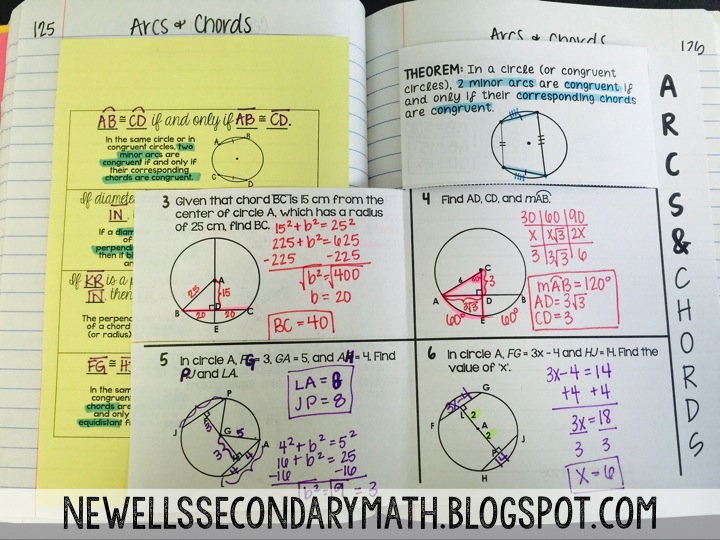 125
Arcs & Chords
AB ≅ CD if and only if AB ≅ CD.
In the same circle or in
congruent circles, two
minor arcs are
congruent if and only if
their corresponding
chords are congruent.
A
B
C
D
If diamete
IN
If a diam
of
perpendi
then it bi
and
If KR is a p
IN, then
The perpen
of a chord
(or radius)
FG ≅ H
In the sam
congruent
chords are
and only
equidistant f
Arcs & Chords
126
THEOREM: In a circle (or congruent
circles), 2 minor arcs are congruent if
and only if their corresponding chords
are congruent.
ARCS & CHORDS
3 Given that chord BC is 15 cm from the
center of circle A, which has a radius
of 25 cm, find BC.
15² + b² = 25²
225 + b² = 625
-225 -225
√b² = √400
b = 20
BC = 40
A
25
15
D
B
20
20
C
E
4 Find AD, CD, and mAB.
30 | 60 | 90
x | x√3 | 2x
3 | 3√3 | 6
mAB = 120°
AD = 3√3
CD = 3
C
6
3
A
D
B
3√3
60°
E
60°
5 In circle A, FG = 3, GA = 5, and AH = 4. Find
PJ and LA.
LA = 8
JP = 8
4² + b² = 5²
16 + b² = 25
-16 -16
√b² = √9 = 3
P
J
3
G
5
A
3
4
4
6 In circle A, FG = 3x - 4 and HJ = 14. Find the
value of 'x'.
3x - 4 = 14
+4 +4
3x = 18
3 3
x = 6
G
3x-4
F
L
2
A
2
P
J
14
H
NEWELLSSECONDARYMATH.BLOGSPOT.COM